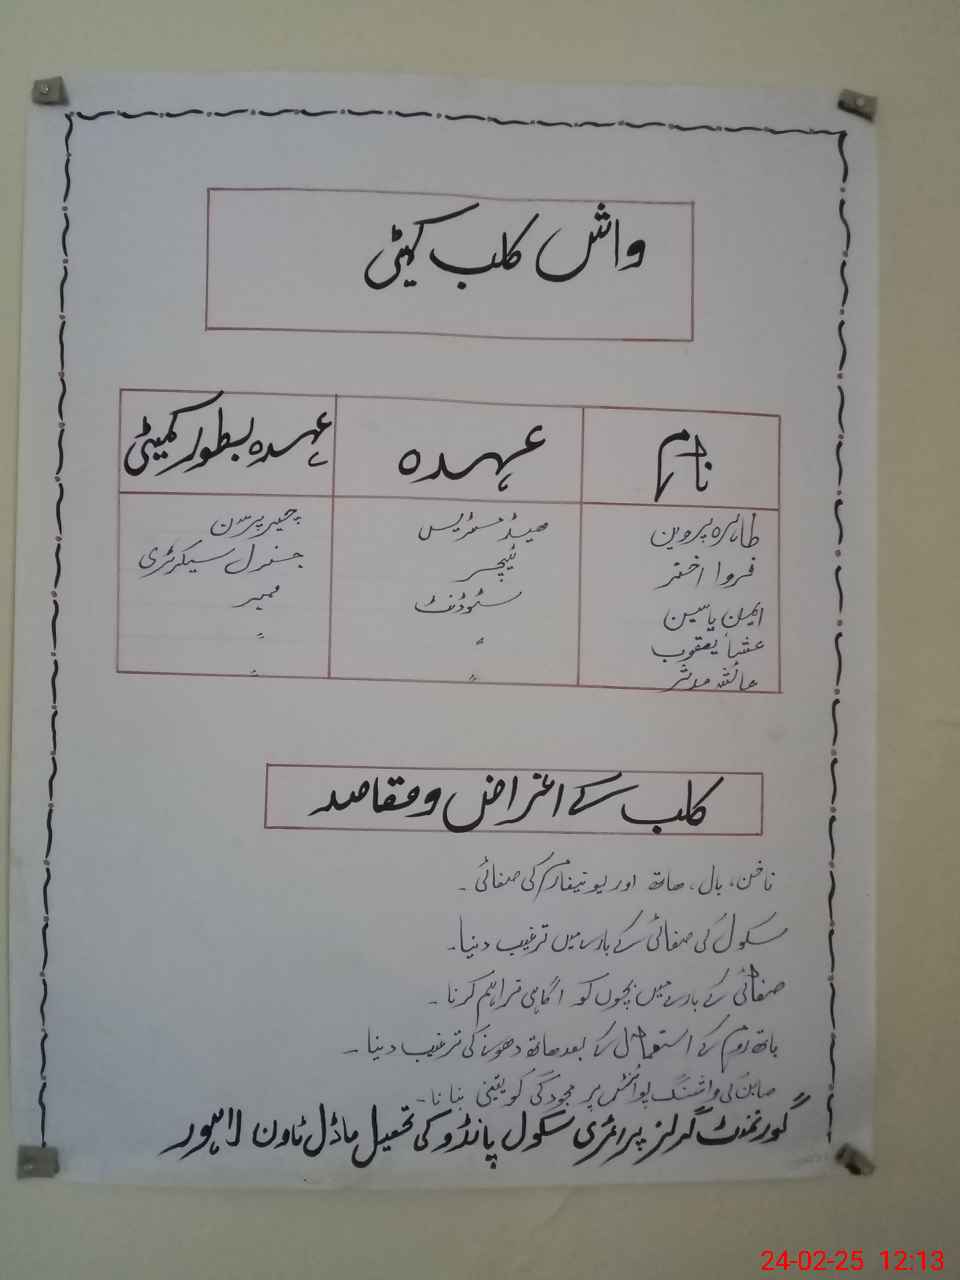 واش کلب کمیٹی
نام عہدہ عہدہ بطور کمیٹی
طاہرہ پروین ھیڈ مسٹریس چیئر پرسن
فروا اختر ٹیچر جنرل سیکرٹری
ایمن یاسین سٹوڈنٹ ممبر
عشاء یعقوب " "
عائشہ مدثر " "
کلب کے اغراض و مقاصد
ناخن، بال، ھاتھ اور یونیفارم کی صفائی ۔
سکول کی صفائی کے بارے میں ترغیب دینا۔
صفائی کے بارے میں بچوں کو آگاہی فراہم کرنا ۔
باتھ روم کے استعمال کے بعد ھاتھ دھونے کی ترغیب دینا ۔
صابن کی واشنگ پوائنٹس پر موجودگی کو یقینی بنانا ۔
گورنمنٹ گرلز پرائمری سکول پانڈوکی تحصیل ماڈل ٹاون لاہور
24-02-25 12:13